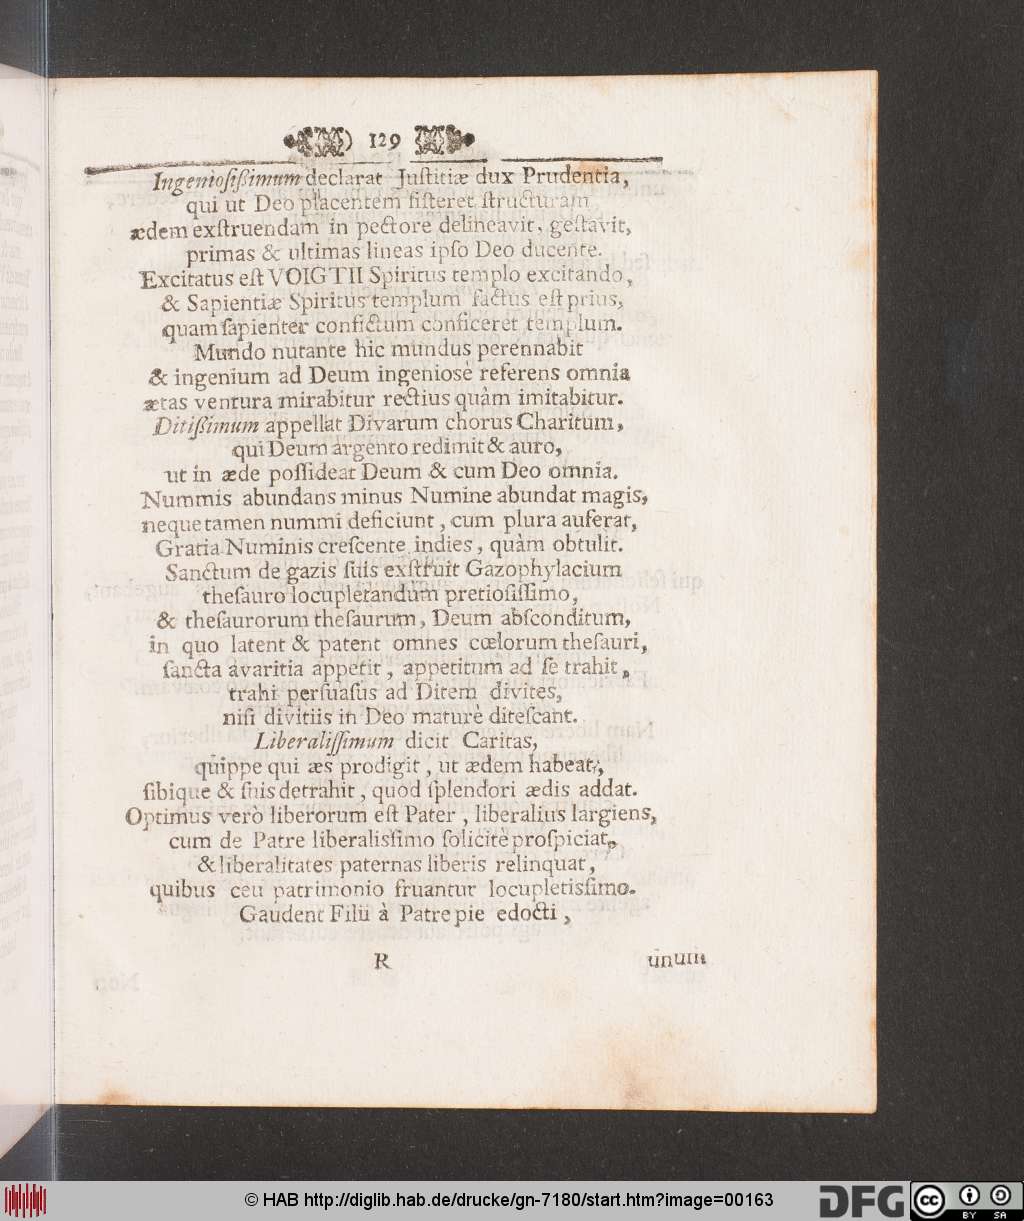 129
Ingenioſiſſimum declarat Juſtitiæ dux Prudentia,
qui ut Deo placentem ſiſteret ſtructuram
ædem exſtruendam in pectore delineavit, geſtavit,
primas & ultimas lineas ipſo Deo ducente.
Excitatus eſt VOIGTII Spiritus templo excitando,
& Sapientiæ Spiritus templum factus eſt prius,
quam ſapienter confictum conficeret templum.
Mundo nutante hic mundus perennabit
& ingenium ad Deum ingeniosè referens omnia
ætas ventura mirabitur rectius quàm imitabitur.
Ditißimum appellat Divarum chorus Charitum,
qui Deum argento redimit & auro,
ut in æde poſſideat Deum & cum Deo omnia.
Nummis abundans minus Numine abundat magis,
neque tamen nummi deficiunt, cum plura auferat,
Gratia Numinis creſcente indies, quàm obtulit.
Sanctum de gazis ſuis exſtruit Gazophylacium
theſauro locupletandum pretioſiſſimo,
& theſaurorum theſaurum, Deum abſconditum,
in quo latent & patent omnes cœlorum theſauri,
ſancta avaritia appetit, appetitum ad ſe trahit,
trahi perſuaſus ad Ditem divites,
niſi divitiis in Deo maturè diteſcant.
Liberaliſſimum dicit Caritas,
quippe qui æs prodigit, ut ædem habeat,
ſibique & ſuis detrahit, quod ſplendori ædis addat.
Optimus verò liberorum eſt Pater, liberalius largiens,
cum de Patre liberalisſimo ſolicitè proſpiciat,
& liberalitates paternas liberis relinquat,
quibus ceu patrimonio fruantur locupletisſimo.
Gaudent Filii à Patre pie edocti,
R unum
© HAB http://diglib.hab.de/drucke/gn-7180/start.htm?image=00163
DFG
cc BY SA